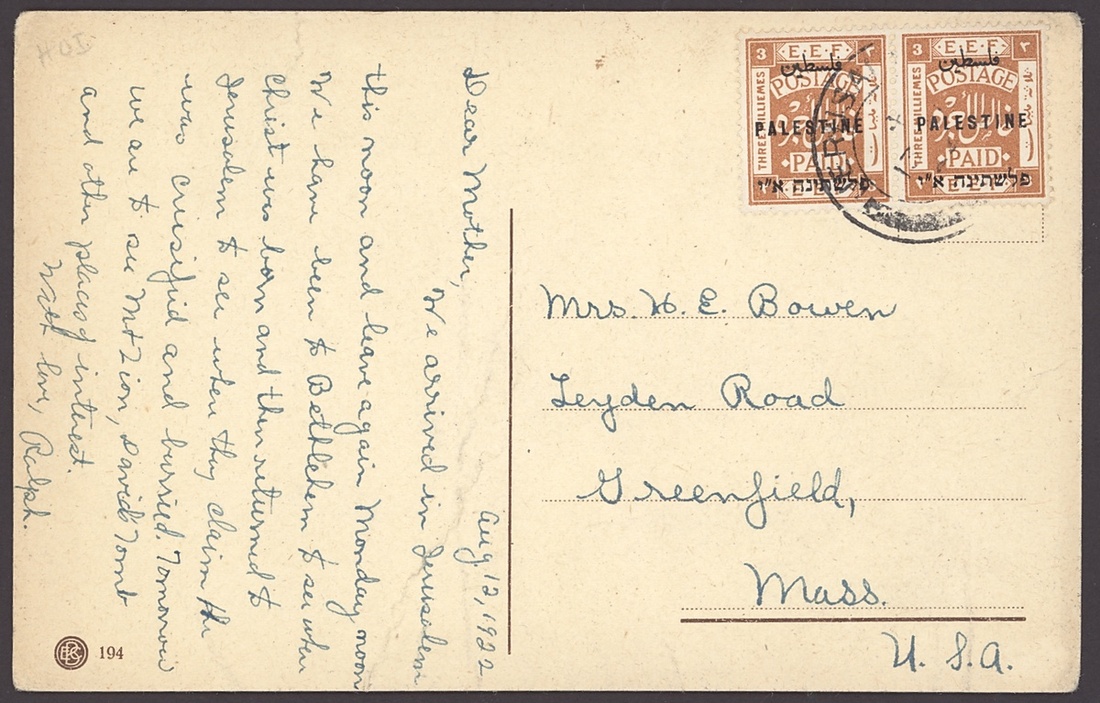 HOI
Aug. 12, 1922
Dear Mother,
We arrived in Jerusalem
this noon and leave again Monday noon
We have been to Bethlehem to see where
Christ was born and then returned to
Jerusalem to see where they claim He
was crusified and burried. Tomorrow
we are to see Mt Zion, David's Tomb
and other places of interest.
With love, Ralph.
194
3 E.E.F ٣
فلسطين
POSTAGE
THREE MILLIEMES
PALESTINE
PAID
פלשתינה א"י
E.E.F
3 E.E.F ٣
فلسطين
POSTAGE
THREE MILLIEMES
PALESTINE
PAID
פלשתינה א"י
E.E.F
Mrs. H. E. Bowen
Leyden Road
Greenfield,
Mass.
U. S. A.